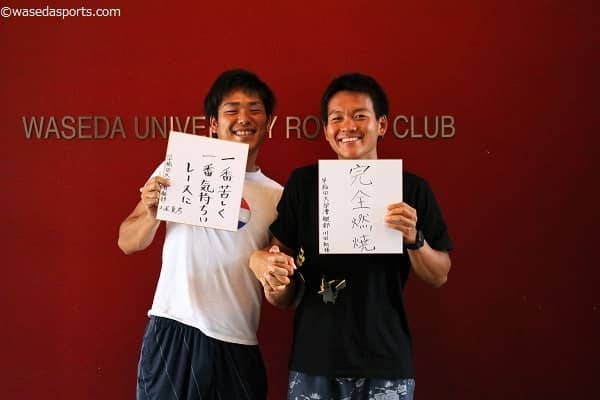 ©wasedasports.com
WASEDA UNIVERSITY ROWING CLUB
一番苦しく
一番気持ちいい
レースに
早稲田大学漕艇部
完全燃焼
早稲田大学漕艇部 川田